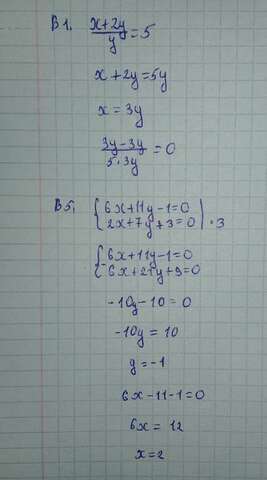 В 1. (x+2y)/y = 5
x+2y=5y
x = 3y
(3y-3y)/(5·3y) = 0
В 5. { 6x+11y-1=0
2x+7y+3=0 | ·3
{ 6x+11y-1=0
6x+21y+9=0
-10y-10=0
-10y=10
y=-1
6x-11-1=0
6x= 12
x=2